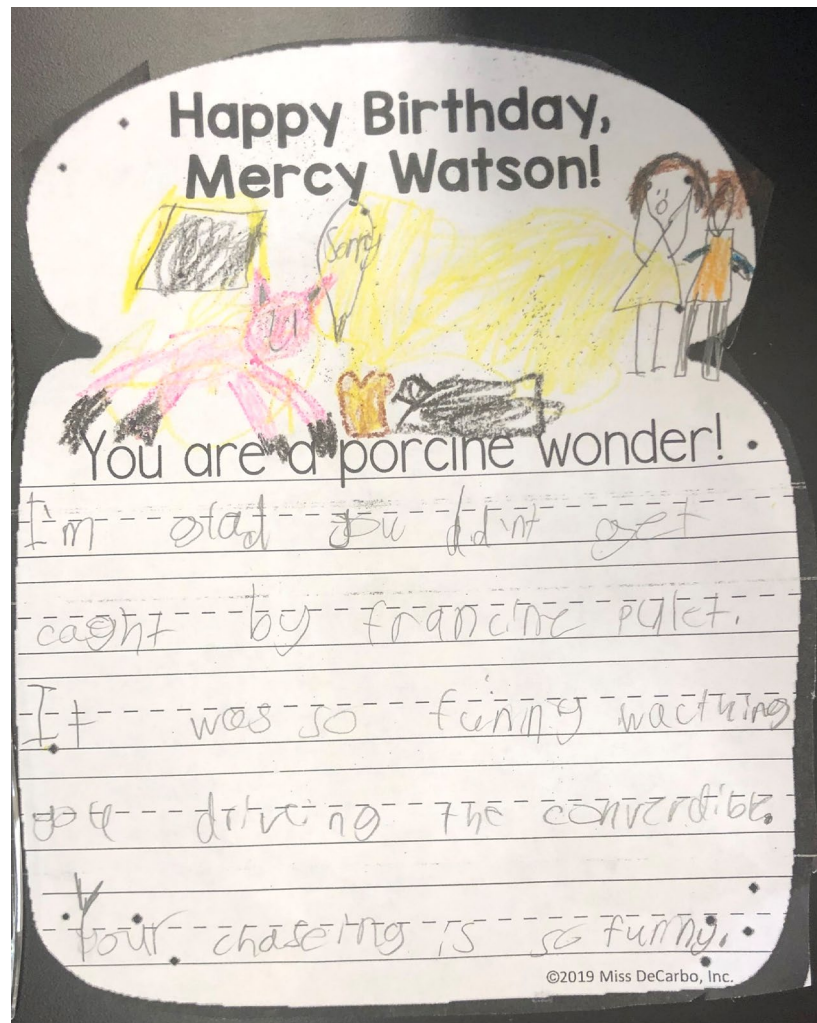 Happy Birthday,
Mercy Watson!
Sorry
You are a porcine wonder!
I'm glad you didn't get
caght by francine pulet.
It was so funny wacthing
you driveing the converdible.
Your chaseing is so funny.
©2019 Miss DeCarbo, Inc.